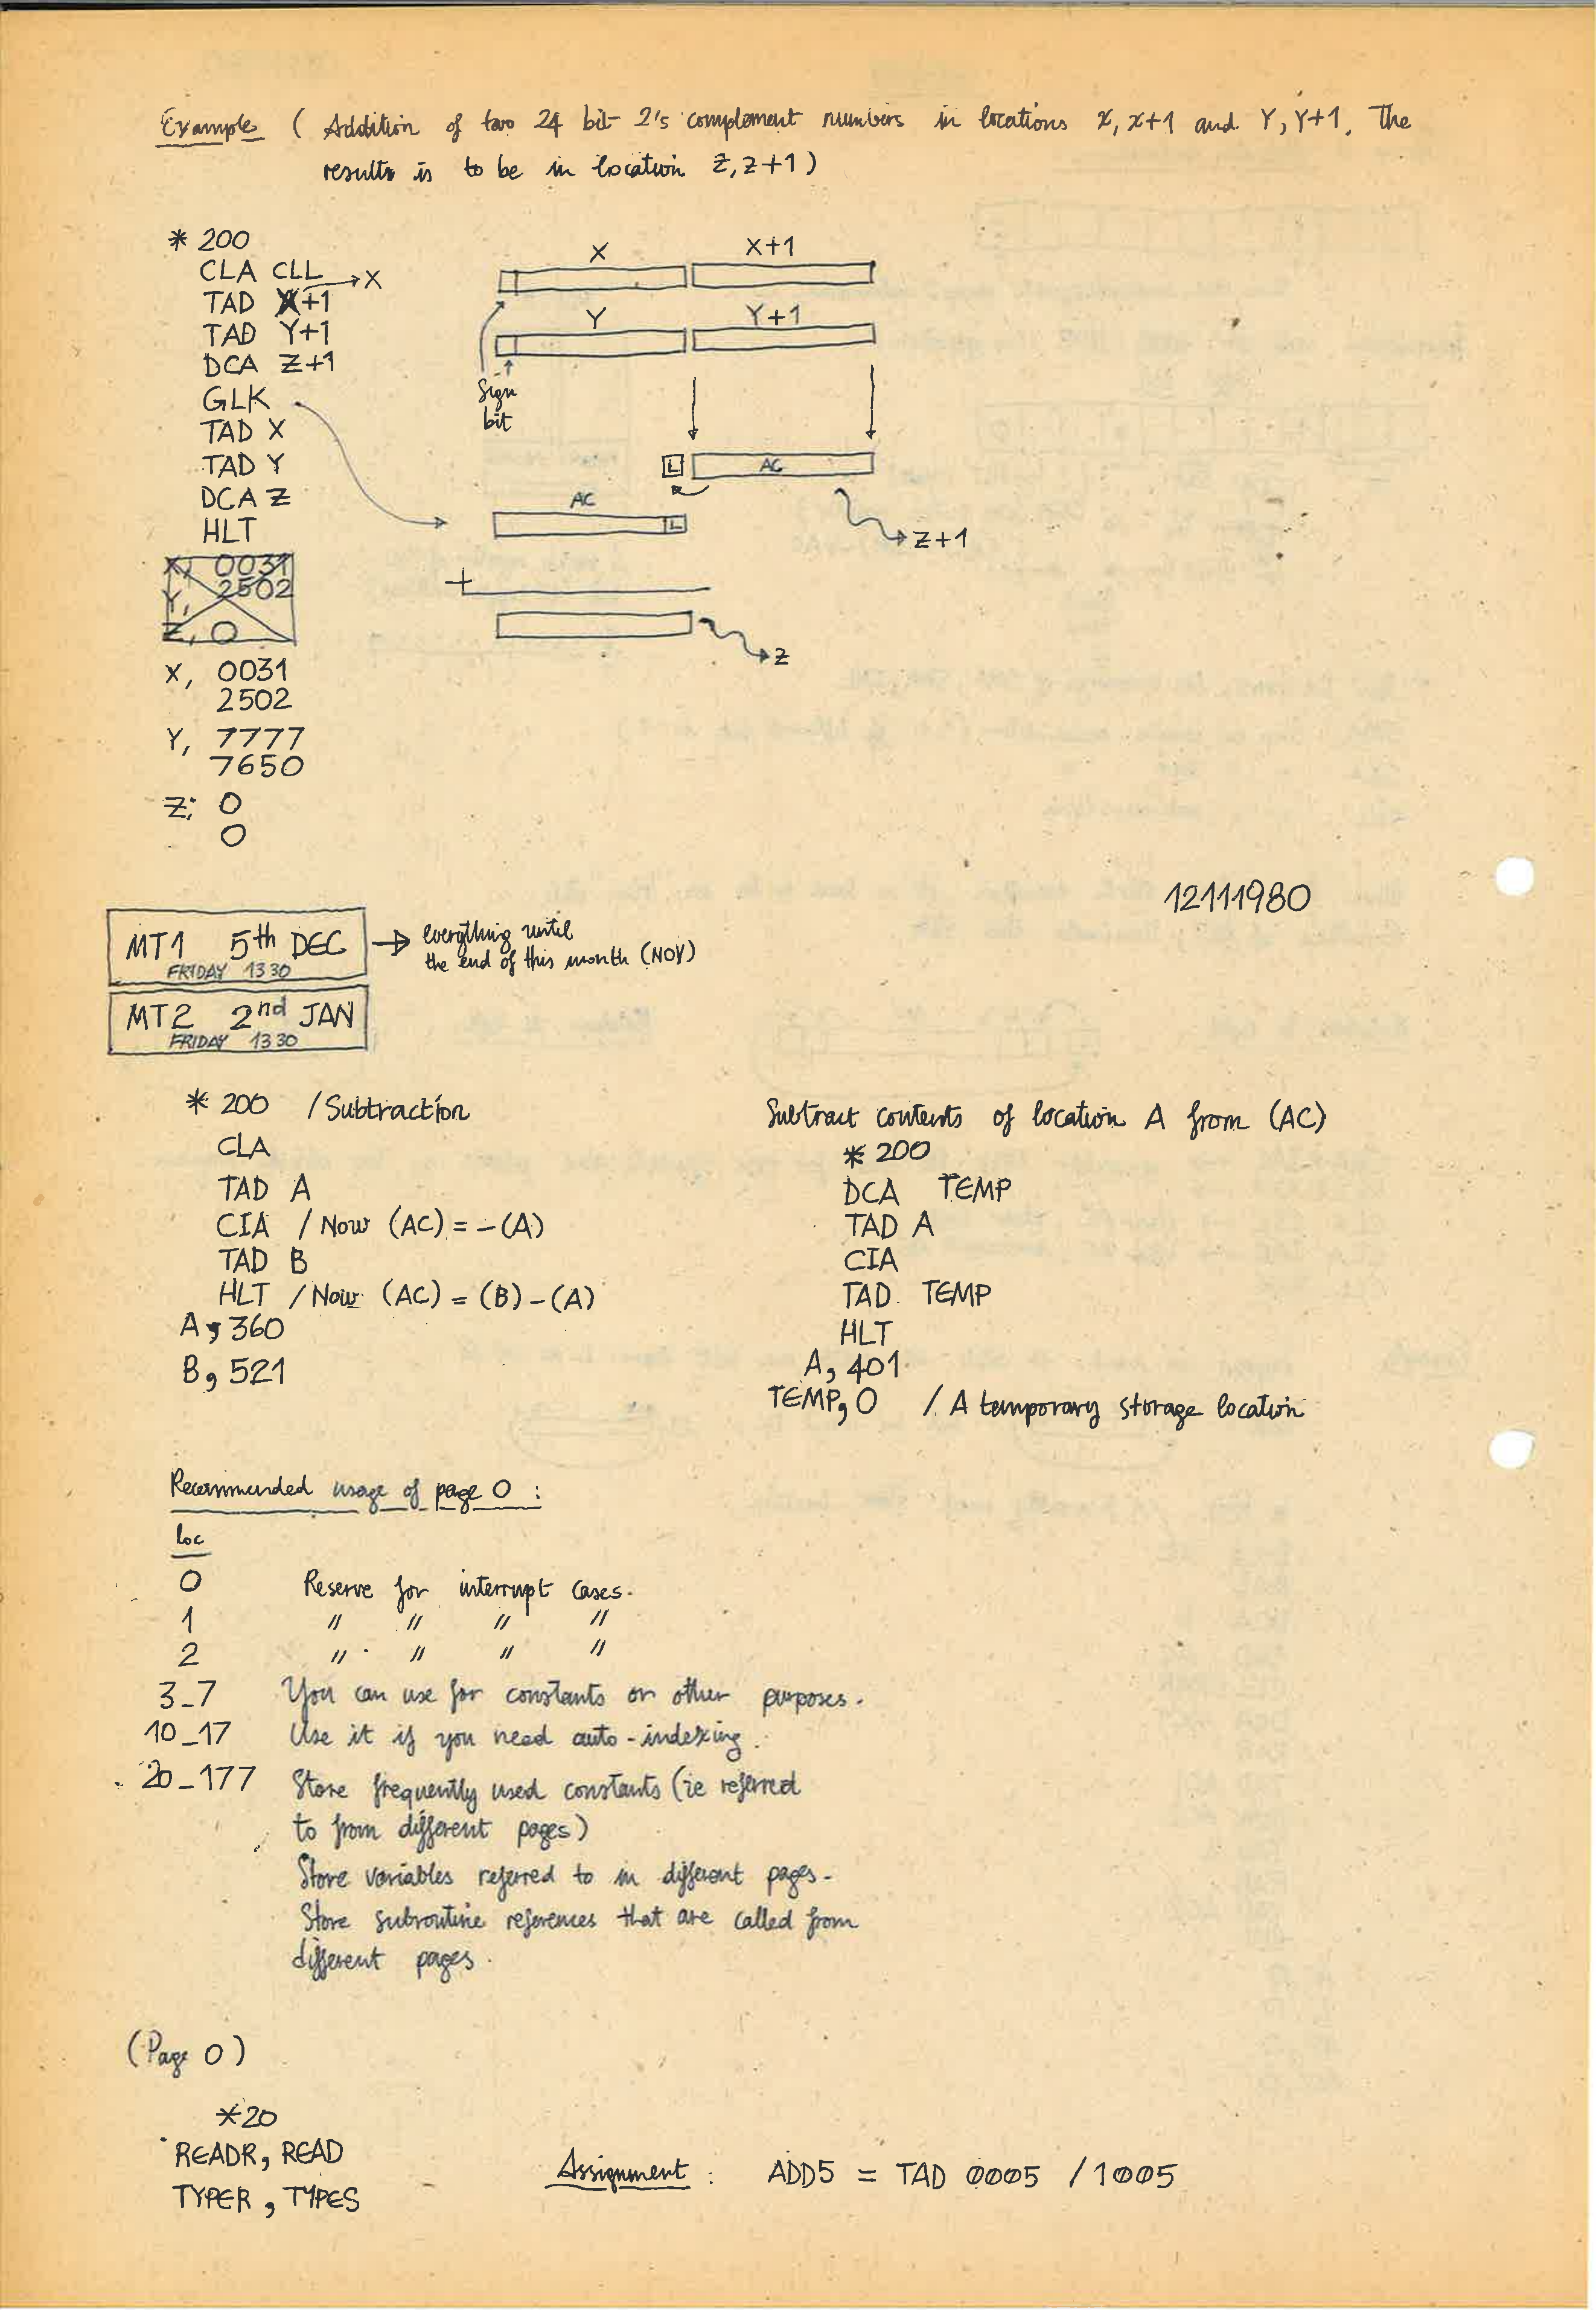 Example ( Addition of two 24 bit 2's complement numbers in locations X, X+1 and Y, Y+1. The
results is to be in location Z, Z+1 )
* 200
CLA CLL → X
TAD X+1
TAD Y+1
DCA Z+1
GLK
TAD X
TAD Y
DCA Z
HLT
X, 0031
Y, 2502
Z, 0
X, 0031
2502
Y, 7777
7650
Z, 0
0
X X+1
Y Y+1
Sign
bit
L AC
AC
L
Z+1
+
Z
12111980
MT1 5th DEC → everything until
FRIDAY 1330 the end of this month (NOV)
MT2 2nd JAN
FRIDAY 1330
* 200 / Subtraction
CLA
TAD A
CIA / Now (AC) = -(A)
TAD B
HLT / Now (AC) = (B) - (A)
A, 360
B, 521
Subtract contents of location A from (AC)
* 200
DCA TEMP
TAD A
CIA
TAD TEMP
HLT
A, 401
TEMP, 0 / A temporary storage location
Recommended usage of page 0 :
loc
0 Reserve for interrupt cases.
1 " " " "
2 " " " "
3_7 You can use for constants or other purposes.
10_17 Use it if you need auto-indexing.
20_177 Store frequently used constants (ie referred
to from different pages)
Store variables referred to in different pages.
Store subroutine references that are called from
different pages.
(Page 0)
*20
READR, READ
TYPER, TYPES
Assignment : ADD5 = TAD 0005 / 1005